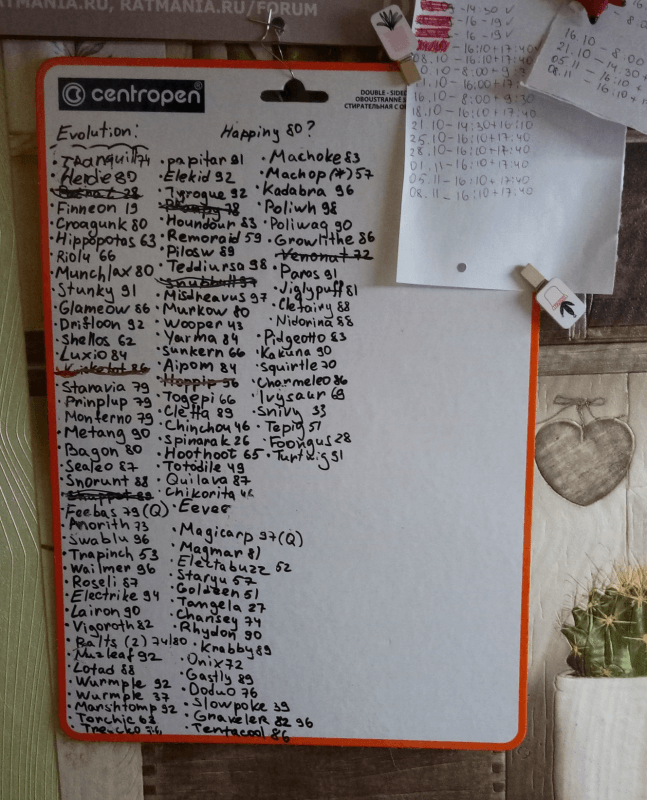 RATMANIA.RU, RATMANIA.RU/FORUM
centropen®
DOUBLE - SIDE
OBOUSTRANNÉ
СТИРАТЕЛЬНАЯ С О
Evolution:
Happing 80?
· Tranquill 74
· Herdie 80
· Patrat 28
· Finneon 19
· Croagunk 80
· Hippopotas 63
· Riolu 66
· Munchlax 80
· Stunky 91
· Glameow 86
· Drifloon 92
· Shellos 62
· Luxio 84
· Kricketot 86
· Staravia 79
· Prinplup 79
· Monferno 79
· Metang 90
· Bagon 80
· Sealeo 87
· Snorunt 88
· Shuppet 89
· Feebas 79 (Q)
· Anorith 73
· Swablu 96
· Trapinch 53
· Wailmer 96
· Roseli 87
· Electrike 94
· Lairon 90
· Vigoroth 82
· Ralts (2) 74/80
· Nuzleaf 92
· Lotad 88
· Wurmple 92
· Wurmple 37
· Marshtomp 92
· Torchic 68
· Treecko 76
· papitar 91
· Elekid 92
· Tyrogue 92
· Phanpy 78
· Houndour 83
· Remoraid 59
· Pilosw 89
· Teddiursa 98
· Snubbull 87
· Misdreavus 97
· Murkow 80
· Wooper 43
· Yarma 84
· Sunkern 66
· Aipom 84
· Hoppip 96
· Togepi 66
· Cleffa 89
· Chinchou 46
· Spinarak 26
· Hoothoot 65
· Totodile 49
· Quilava 87
· Chikorita 46
· Eevee
· Magicarp 97(Q)
· Magmar 81
· Electabuzz 52
· Staryu 57
· Goldeen 51
· Tangela 27
· Chansey 74
· Rhydon 90
· Krabby 89
· Onix 72
· Gastly 89
· Doduo 76
· Slowpoke 39
· Graveler 82 96
· Tentacool 86
· Machoke 83
· Machop (*) 57
· Kadabra 96
· Poliwh 98
· Poliwag 90
· Growlithe 86
· Venonat 72
· Paros 91
· Jiglypuff 81
· Clefairy 88
· Nidorina 88
· Pidgeotto 83
· Kakuna 90
· Squirtle 70
· Charmeleo 86
· Ivysaur 69
· Snivy 33
· Tepig 51
· Foongus 28
· Turtwig 91
- 14:30 ✓
- 16 - 19 ✓
- 16 - 19 ✓
- 16:10 + 17:40
08.10 - 16:10 + 17:40
10.10 - 8:00 + 9:30
11.10 - 16:00 + 17:
16.10 - 8:00 + 9:30
18.10 - 16:10 + 17:40
21.10 - 14:30 + 16:10
25.10 - 16:10 + 17:40
28.10 - 16:10 + 17:40
01.11 - 16:10 + 17:40
05.11 - 16:10 + 17:40
08.11 - 16:10 + 17:40
16.10 - 8:00
21.10 - 14:30 +
05.11 - 16:10 +
08.11 - 16:10 +